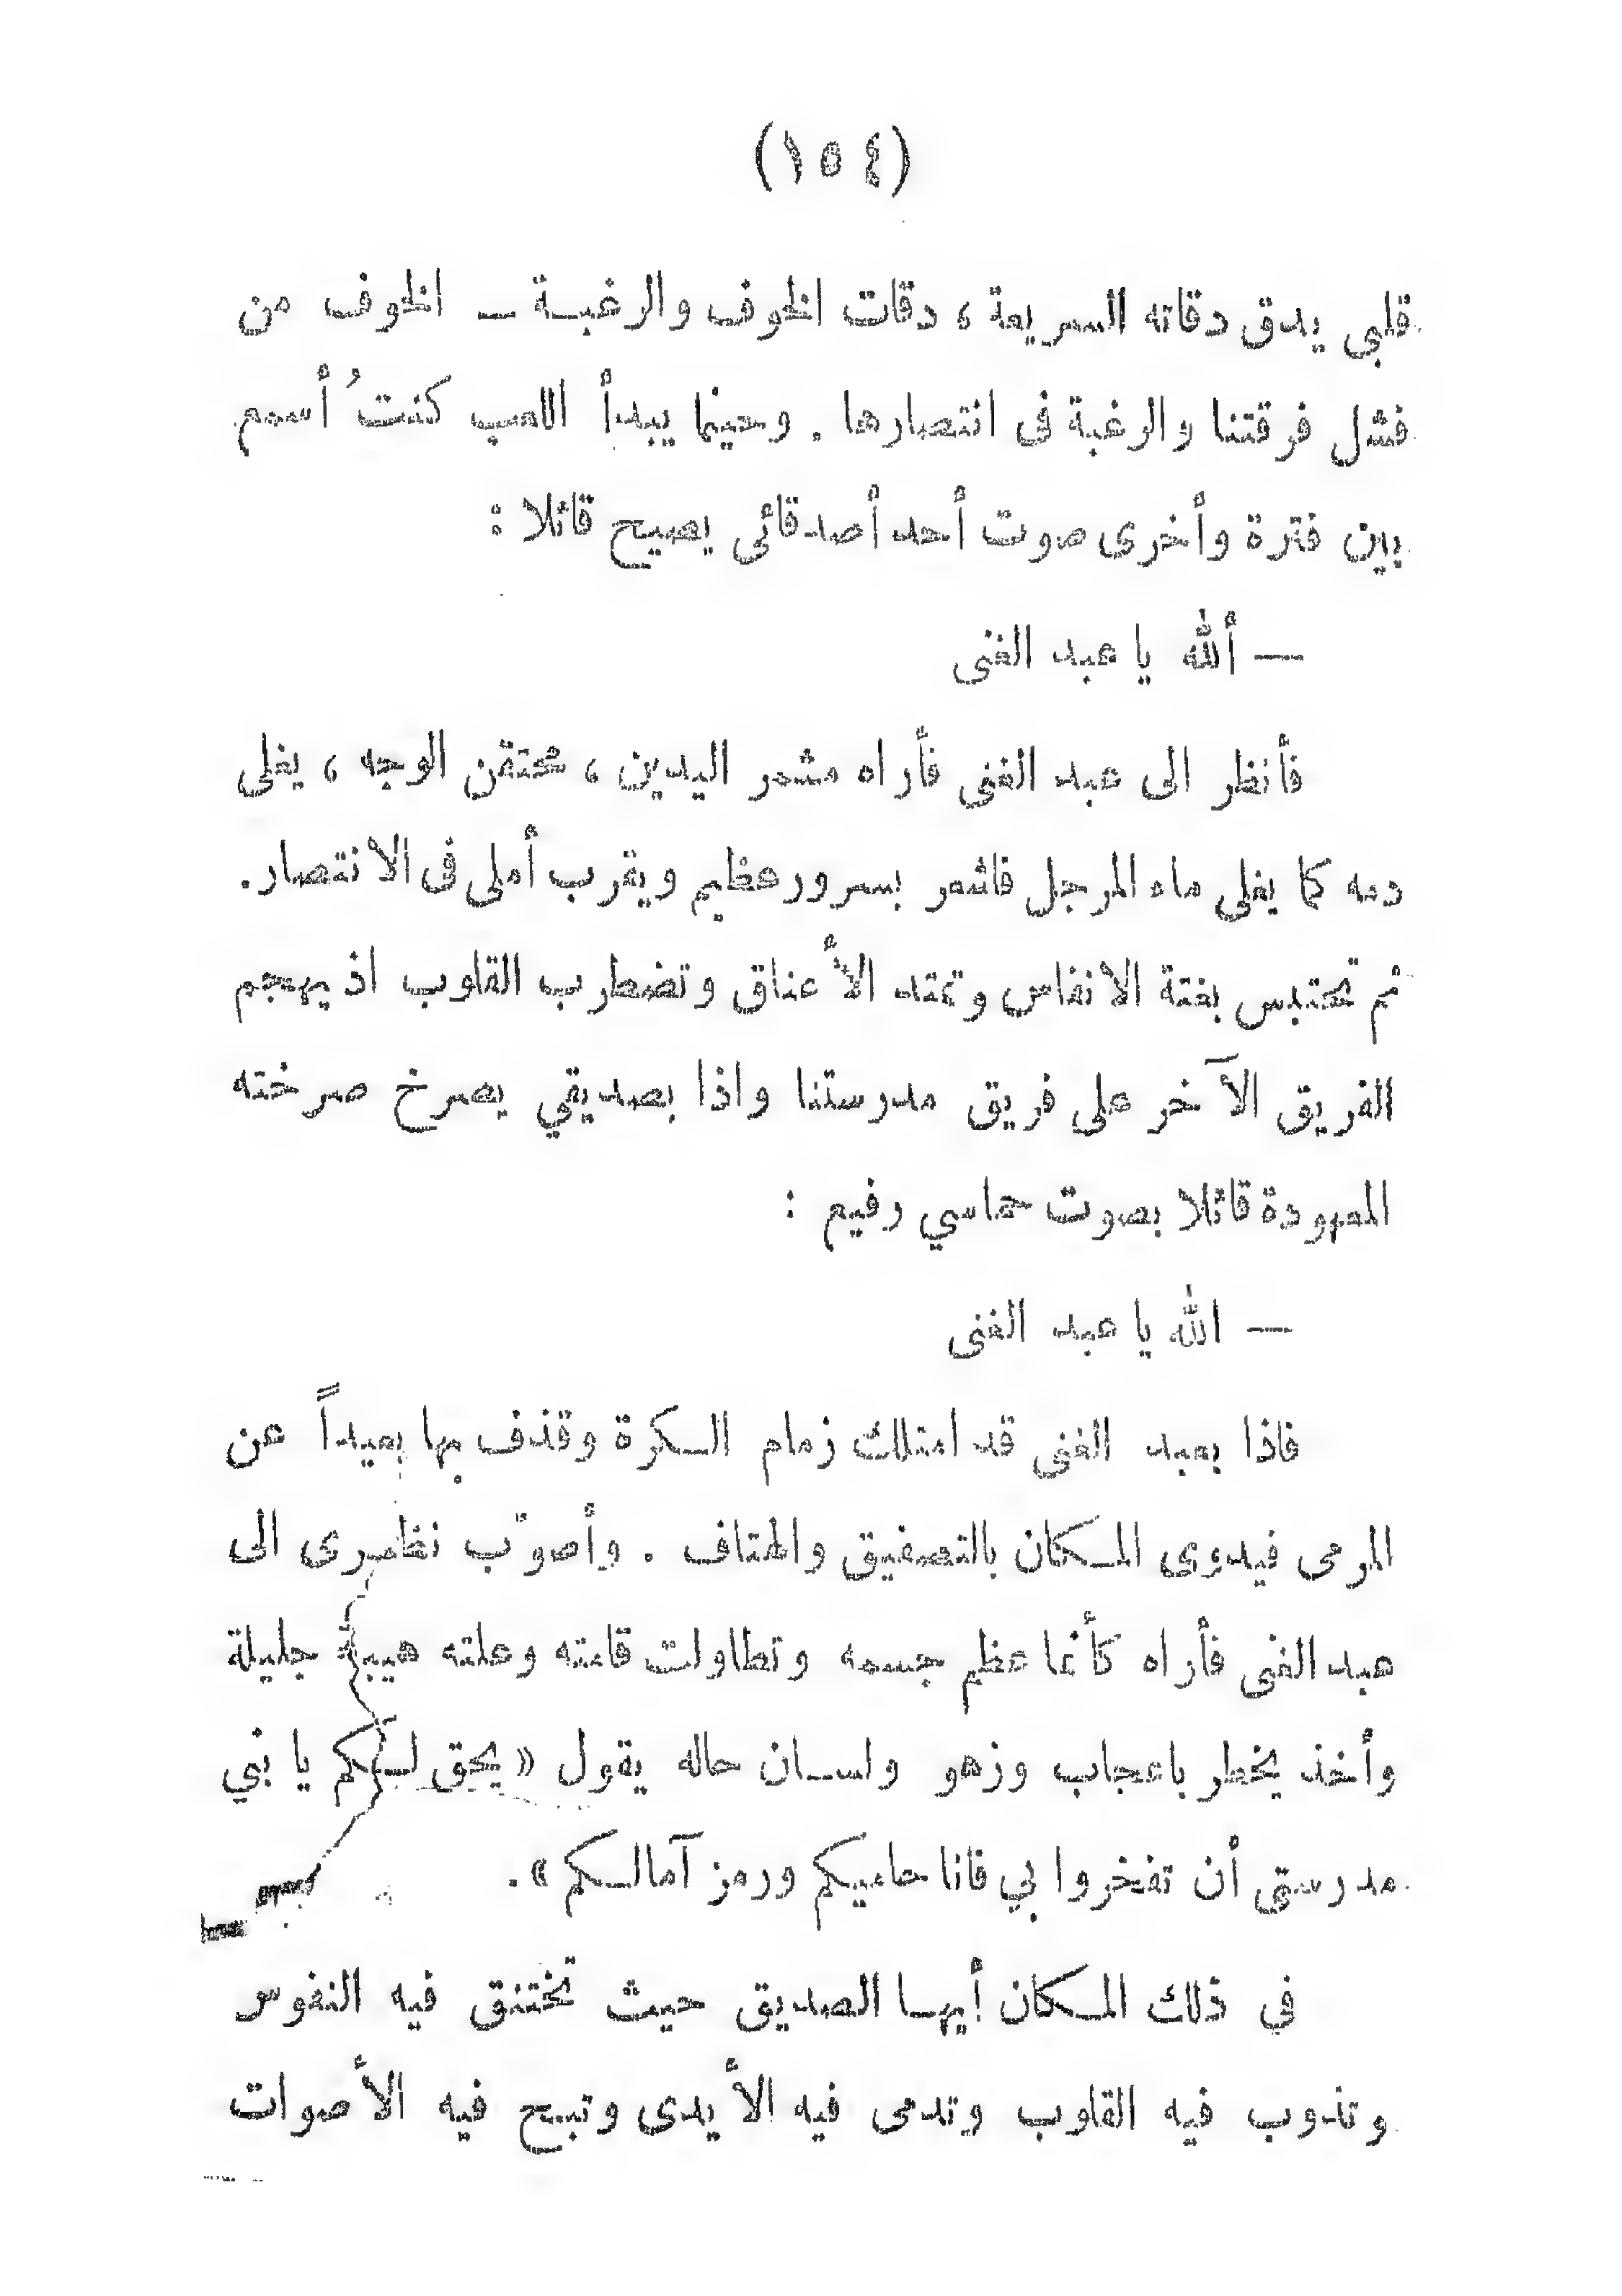 (١٥٤)
قلبي يدق دقاته السريعة ، دقات الخوف والرغبـة ــ الخوف من
فشل فرقتنا والرغبة فى انتصارها . وحينما يبدأ اللعب كنتُ أسمع
بين فترة وأخرى صوت أحد أصدقائى يصيح قائلا :
— ألله يا عبد الغنى
فأنظر الى عبد الغنى فأراه مشمر اليدين ، محتقن الوجه ، يغلى
دمه كما يغلى ماء المرجل فاشعر بسرور عظيم ويقرب أملى فى الانتصار.
ثم تحتبس بغتة الانفاس وتمتد الأعناق وتضطرب القلوب اذ يهجم
الفريق الآخر على فريق مدرستنا واذا بصديقي يصرخ صرخته
المعهودة قائلا بصوت حماسي رفيع :
— الله يا عبد الغنى
فاذا بعبد الغنى قد امتلك زمام الـكرة وقذف بها بعيداً عن
المرمى فيدوى المـكان بالتصفيق والهتاف . وأصوّب نظـرى الى
عبد الغنى فأراه كأنما عظم جسمه وتطاولت قامته وعلته هيبة جليلة
وأخذ يخطر باعجاب وزهو ولسـان حاله يقول « يحق لـكم يا بني
مدرستى أن تفخروا بي فانا حاميكم ورمز آمالـكم » .
في ذلك المـكان أيهـا الصديق حيث تختنق فيه النفوس
وتذوب فيه القلوب وتدمى فيه الأيدى وتبـح فيه الأصوات